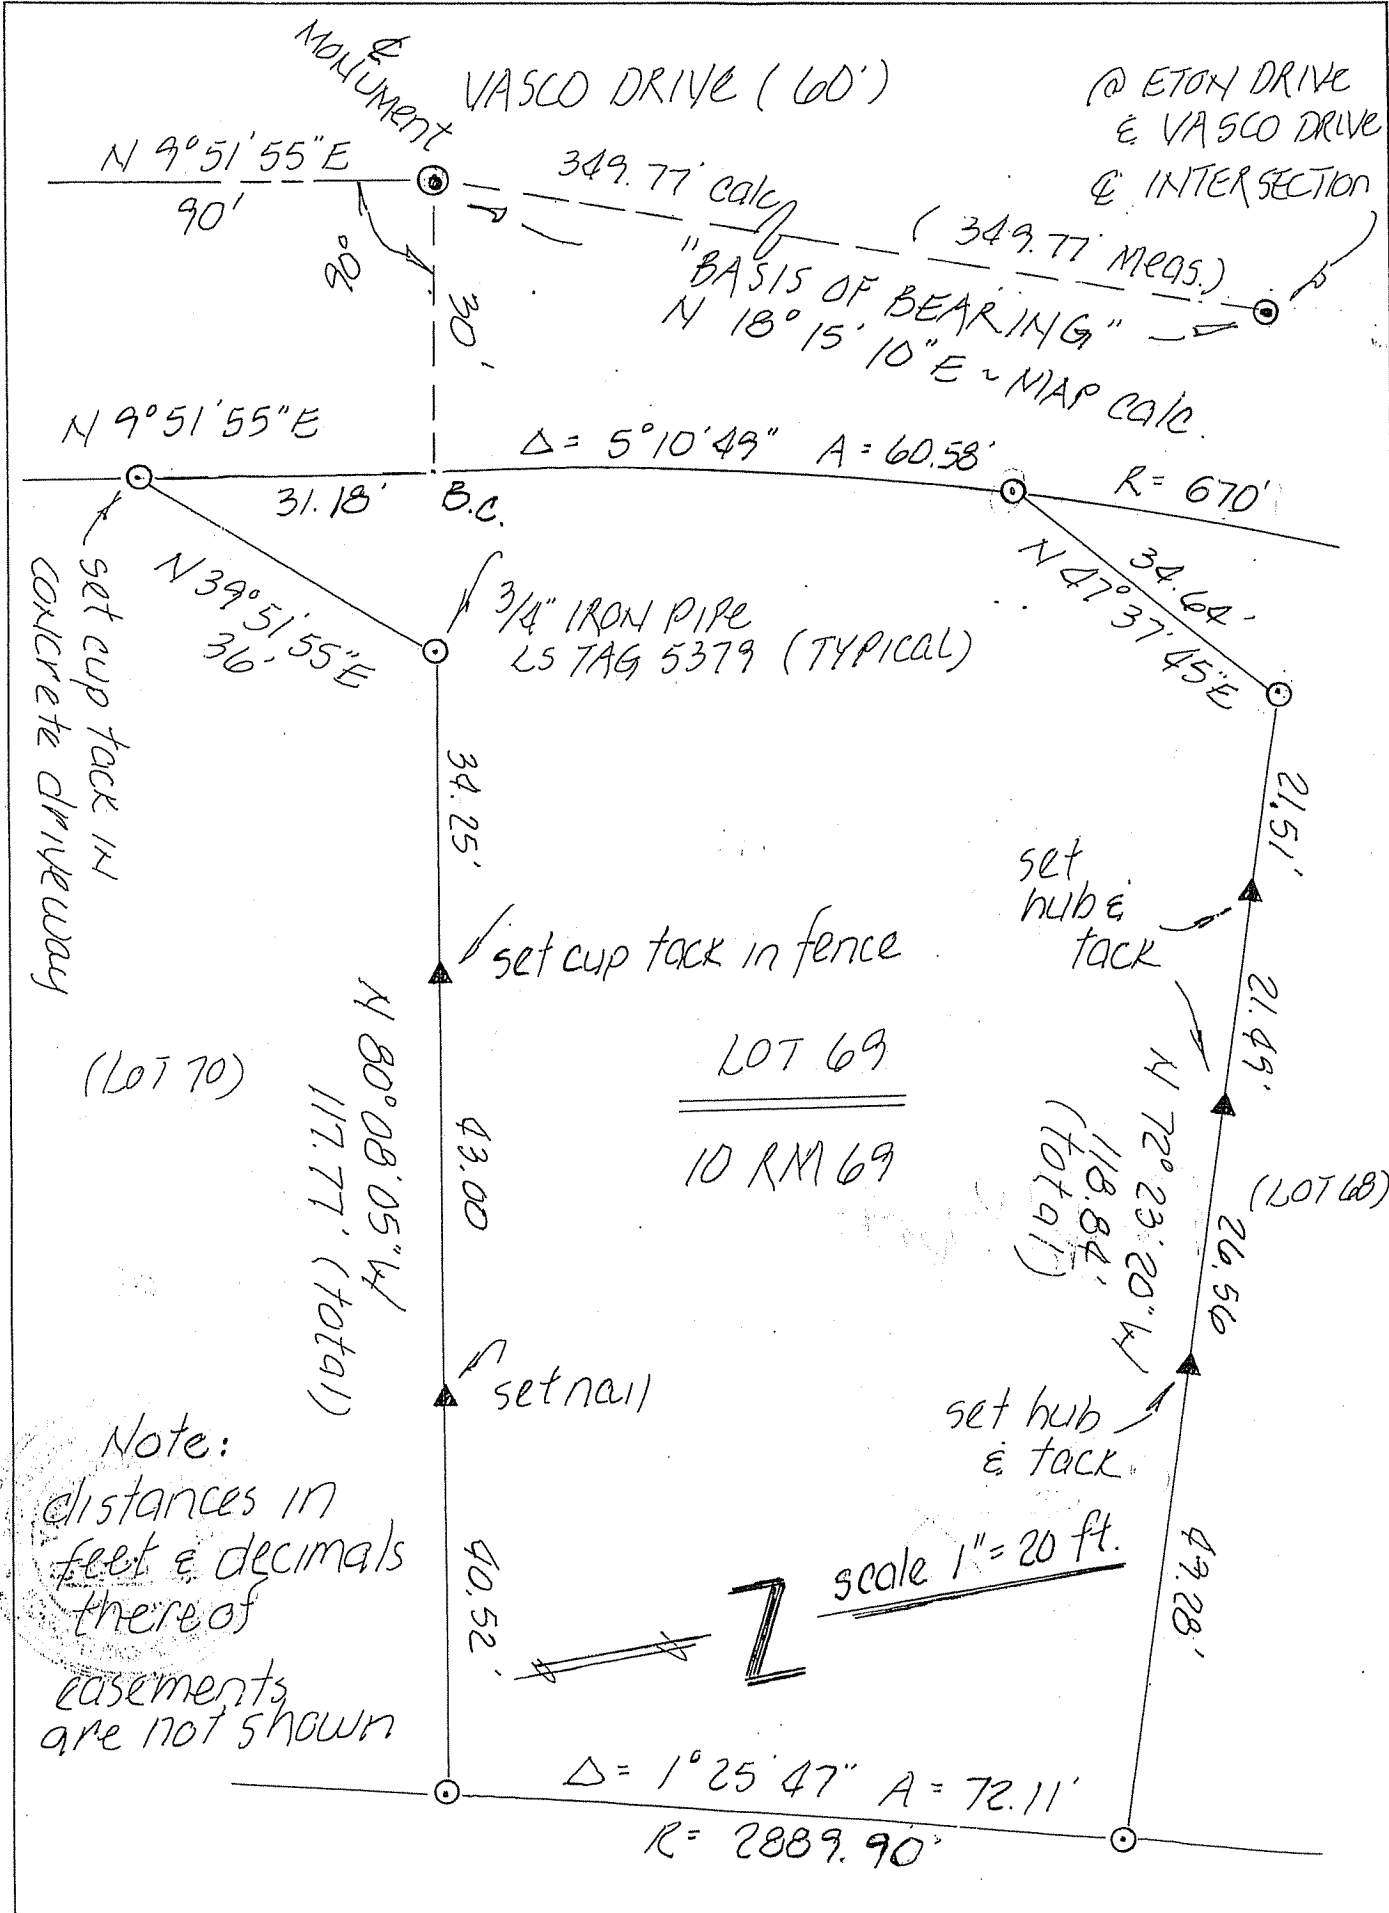 ℄
MONUMENT
VASCO DRIVE (60')
@ ETON DRIVE
& VASCO DRIVE
℄ INTERSECTION
N 9°51'55"E
90'
90°
30'
349.77' calc
(349.77' Meas.)
"BASIS OF BEARING"
N 18°15'10"E ~ MAP calc.
N 9°51'55"E
31.18'
B.C.
Δ= 5°10'49" A = 60.58'
R= 670'
set cup tack in
concrete driveway
N 39°51'55"E
36'
3/4" IRON PIPE
LS TAG 5379 (TYPICAL)
34.64'
N 47°37'45"E
34.25'
21.51'
set
hub &
tack
set cup tack in fence
21.49'
N 80°08'05"W
117.77' (total)
(LOT 70)
LOT 69
10 RM 69
43.00
N 72°23'20"W
118.84'
(total)
(LOT 68)
26.56
set nail
set hub
& tack
Note:
distances in
feet & decimals
thereof
easements
are not shown
40.52'
Z
scale 1"= 20 ft.
49.28'
Δ= 1°25'47" A = 72.11'
R= 2889.90'